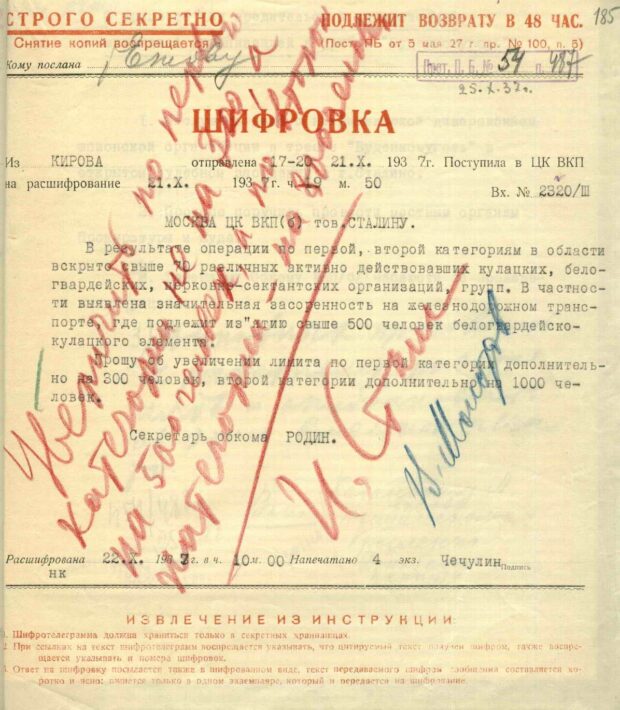 СТРОГО СЕКРЕТНО ПОДЛЕЖИТ ВОЗВРАТУ В 48 ЧАС. 185
Снятие копий воспрещается (Пост. ПБ от 5 мая 27 г. пр. № 100, п. 5)
Кому послана т. Ежову Прот. П. Б. № 54 п. 487
25.X.37г.
ШИФРОВКА
Из КИРОВА отправлена 17-20 21.X. 1937г. Поступила в ЦК ВКП
на расшифрование 21.X. 1937г. ч. 19 м. 50
Вх. № 2320/Ш
МОСКВА ЦК ВКП(б) тов.СТАЛИНУ.
В результате операции по первой, второй категориям в области
вскрыто свыше 70 различных активно действовавших кулацких, бело-
гвардейских, церковно-сектантских организаций, групп. В частности
выявлена значительная засоренность на железнодорожном транс-
порте, где подлежит из"ятию свыше 500 человек белогвардейско-
кулацкого элемента.
Прошу об увеличении лимита по первой категории дополнитель-
но на 300 человек, второй категории дополнительно на 1000 че-
ловек.
Секретарь обкома РОДИН.
Увеличить по первой
категории не на 300, а
на 500 человек, а по второй
категории – на 800 человек
И. Сталин
В. Молотов
Расшифрована 22.X. 1937 г. в ч. 10 м. 00 Напечатано 4 экз. Чечулин Подпись
нк
ИЗВЛЕЧЕНИЕ ИЗ ИНСТРУКЦИИ
1. Шифротелеграмма должна храниться только в секретных хранилищах.
2. При ссылках на текст шифротелеграмм воспрещается указывать, что цитируемый текст получен шифром, также воспре-
щается указывать и номера шифровок.
3. Ответ на шифровку посылается также в шифрованном виде, текст передаваемого шифром сообщения составляется ко-
ротко и ясно; пишется только в одном экземпляре, который и передается на шифрование.